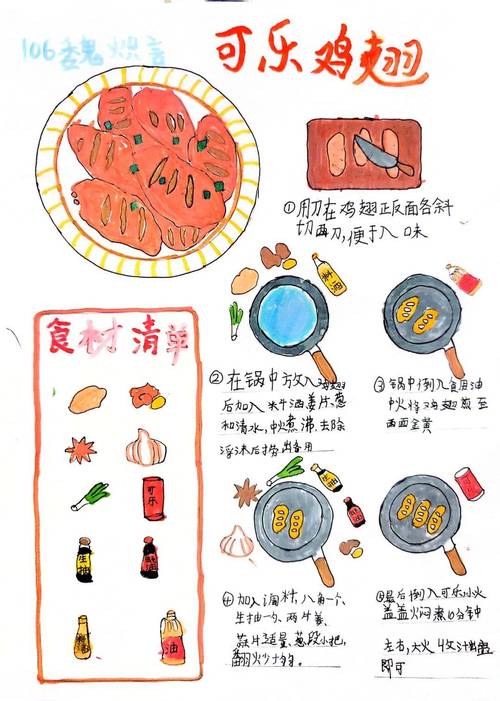 106 魏
可乐鸡翅
①用刀在鸡翅正反面各斜
切两刀,便于入味
食材清单
可乐
生抽
油
料酒
②在锅中放入鸡翅
后加入料酒姜片、葱
和清水,中火煮沸,去除
浮沫后捞出备用
③锅中倒入食用油
中火将鸡翅煎至
两面金黄
④加入调料,八角一个、
生抽一勺、两片姜、
蒜片适量、葱段小把,
翻火炒
⑤最后倒入可乐小火
盖盖火焖煮10分钟
左右,大火收汁出锅
即可